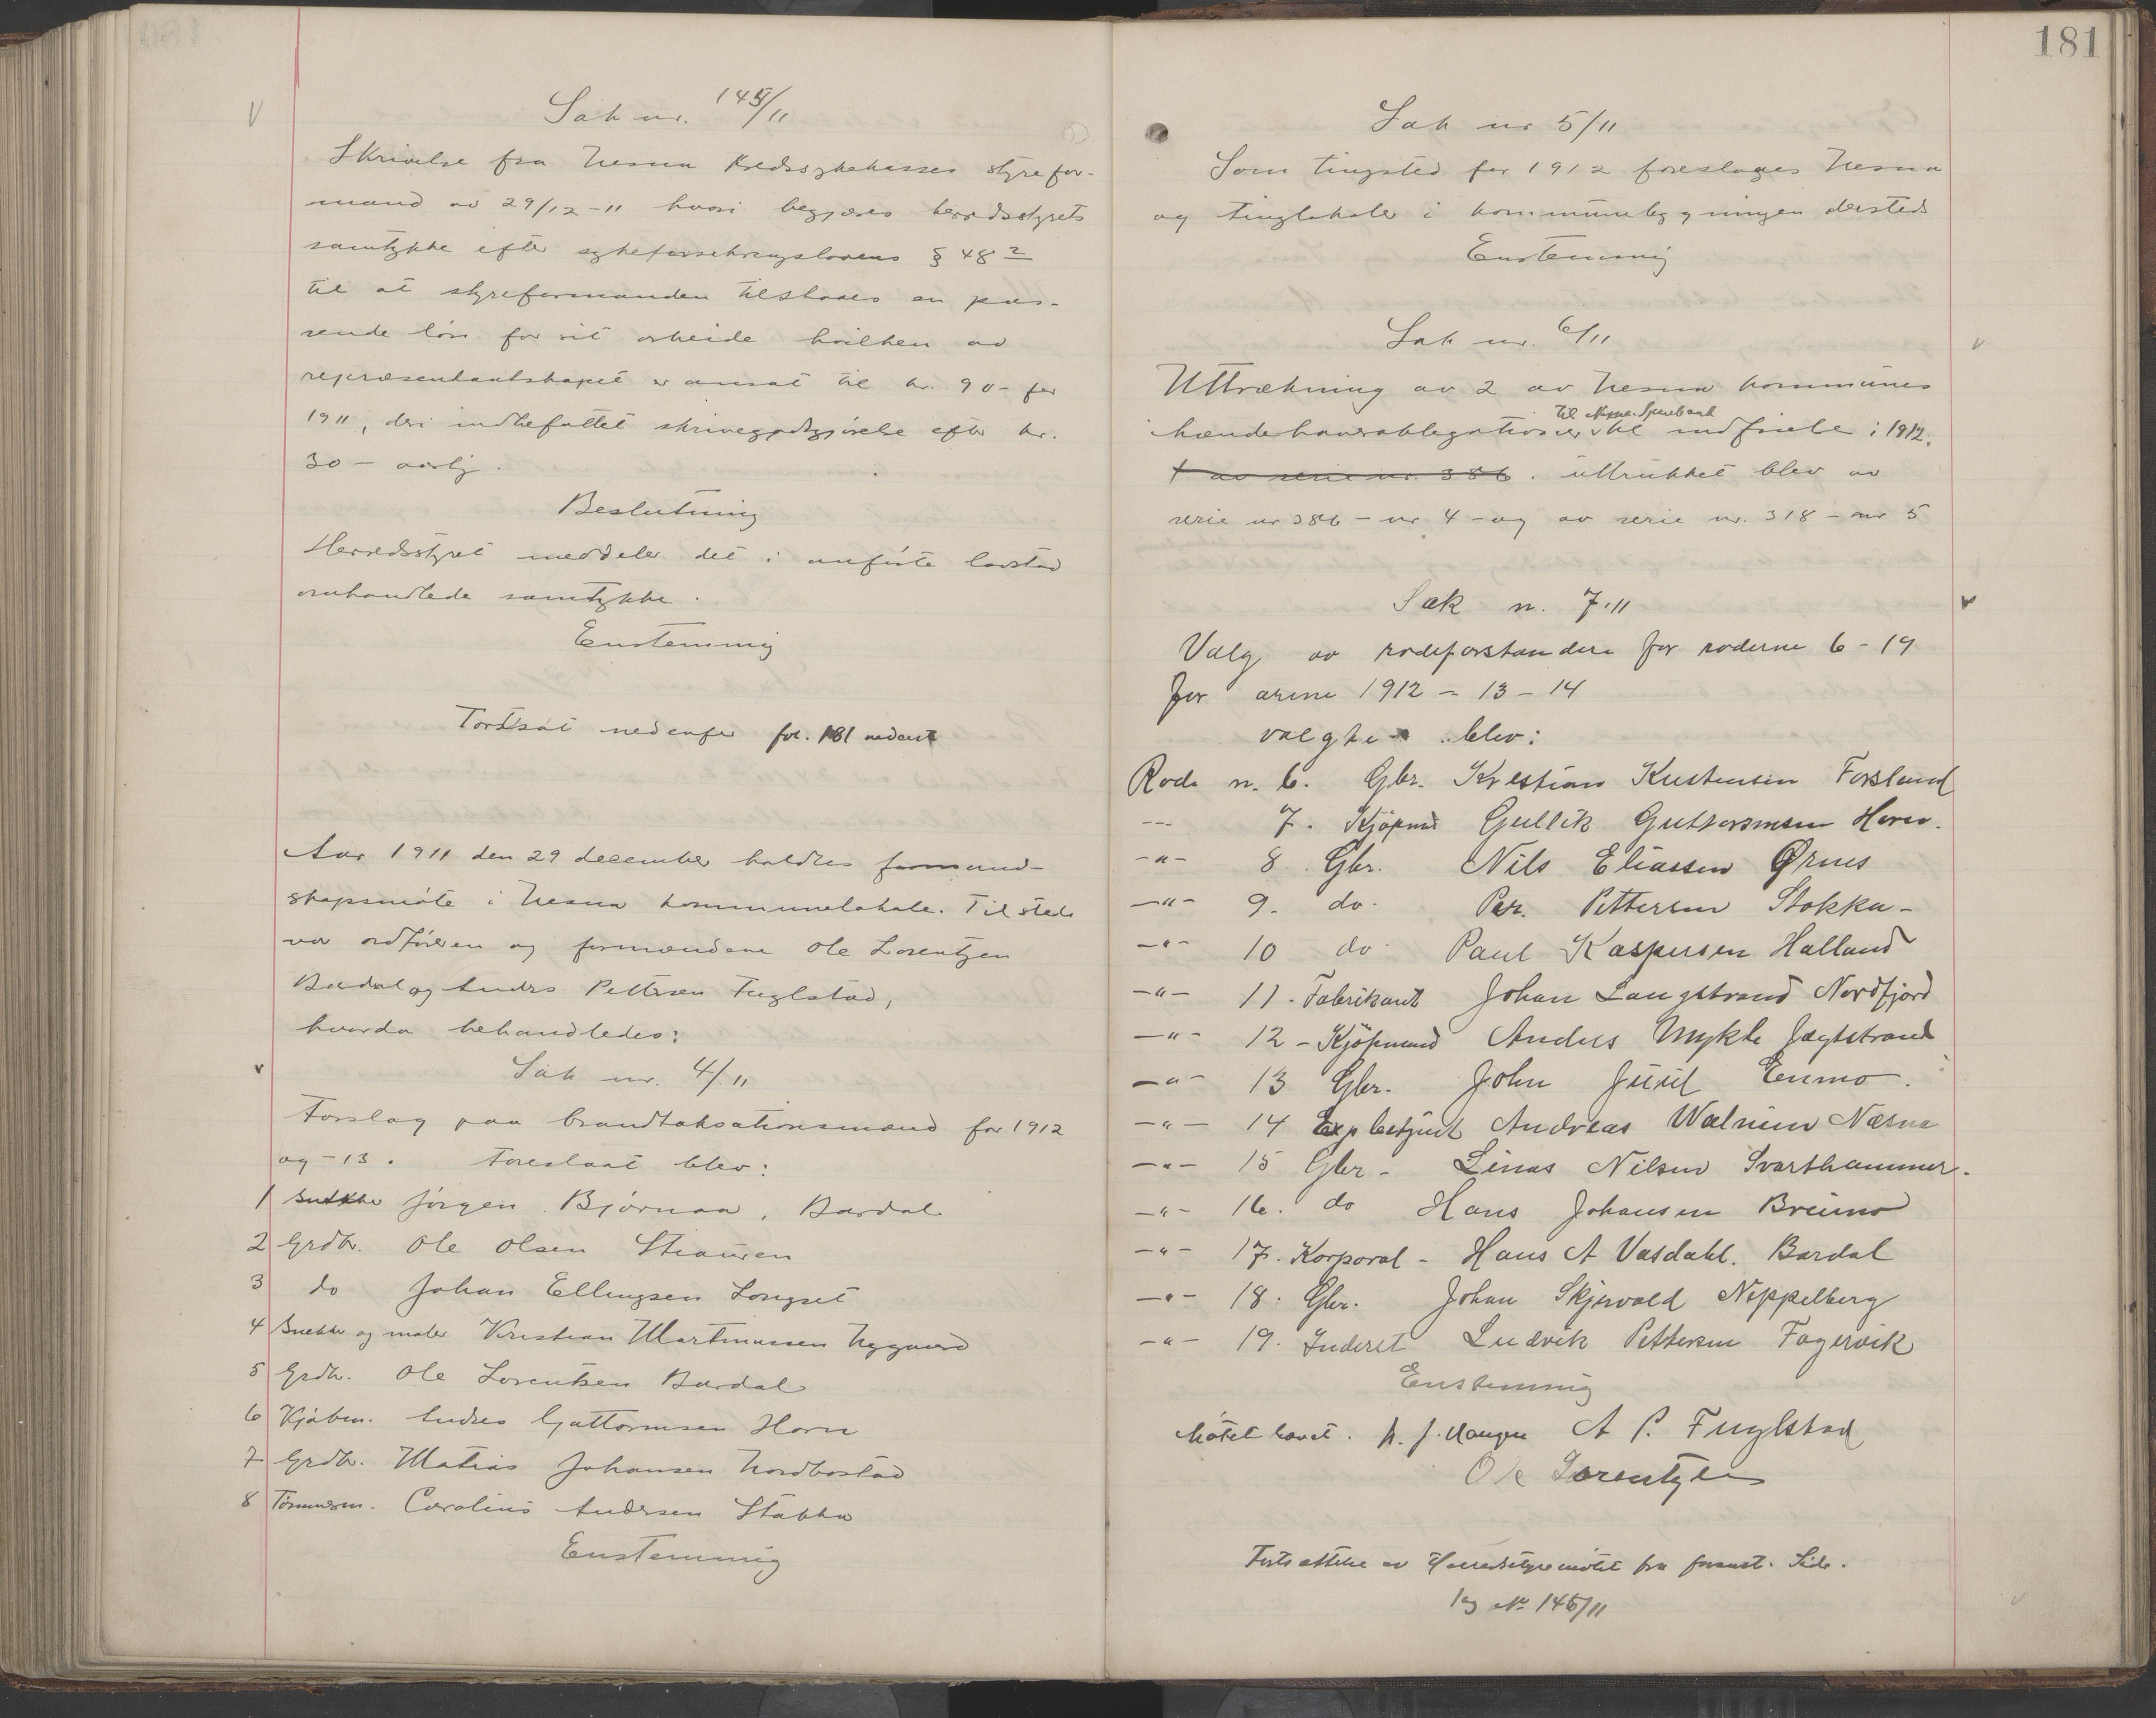 Sak nr. 145/11
Skrivelse fra Nesna Kredssykekasses styrefor-
mand av 29/12-11 hvori begjæres herredsstyrets
samtykke efter sykeforsikringslovens § 48 2
til at styreformanden tilstaaes en pas-
sende løn for sit arbeide hvilken av
repræsentantskapet er ansat til kr. 90- for
1911, deri indbefattet skrivegodtgjørelse efter kr.
30 - aarlig.
Beslutning
Herredsstyret meddeler det i anførte lovsted
omhandlede samtykke.
Enstemmig
Fortsat nedenfor fol. 181 nederst
Aar 1911 den 29 december holdtes formand-
skapsmøte i Nesna kommunelokale. Tilstede
var ordføreren og formændene Ole Lorentzen
Bardal og Anders Pettersen Fuglstad,
hvorda behandledes:
Sak nr. 4/11
Forslag paa brandtaksationsmænd for 1912
og -13. Foreslaat blev:
1 Snekker Jørgen Bjørnaa, Bardal
2 Grdbr. Ole Olsen Strauren
3 do Johan Ellingsen Longset
4 Snekker og maler Kristian Martinussen Nygaard
5 Grdbr. Ole Lorentsen Bardal
6 Kjøbm. Andreas Guttormsen Horn
7 Grdbr. Matias Johansen Nordbostad
8 Tømmerm. Carolius Andersen Stokka
Enstemmig
181
Sak nr 5/11
Som tingsted for 1912 foreslages Nesna
og tinglokale i kommunebygningen dersteds
Enstemmig
Sak nr. 6/11
Uttrækning av 2 av Nesna kommunes
til Nesna Sparebank
ihændehaverobligationer til indfrielse i 1912.
1 av serie nr. 386. uttrukket blev av
serie nr 386 - nr 4 - og av serie nr. 318 - nr 5
Sak n. 7/11
Valg av rodeforstandere for roderne 6-19
for arene 1912 - 13 - 14
valgte blev:
Rode n. 6. Gbr. Kristian Kristensen Forsland
--- 7. Kjøpmd Gullik Guttormsen Horn.
-"- 8. Gbr. Nils Eliassen Ørnes
-"- 9. do. Per. Pettersen Stokka-
-"- 10 do Paul Kaspersen Halland
-"- 11. Fabrikant Johan Langstrand Nordfjord
-"- 12 - Kjøpmand Anders Mykle Jægtstrand
-"- 13 Gbr. John Juul Enmo.
-"- 14 Expbetjent Andreas Walnum Næsna
-"- 15 Gbr - Linus Nilsen Svarthammer.
-"- 16. do Hans Johansen Breimo
-"- 17. Korporal - Hans A Vasdahl. Bardal
-"- 18. Gbr. Johan Skjervold Nippelberg
-"- 19. Inderst Ludvik Pettersen Fagervik
Enstemmig
Møtet hævet. A P. Fuglstad
Ole Lorentzen
Fortsættelse av Herredsstyremøtet fra foranst. Side.
Sag No 146/11